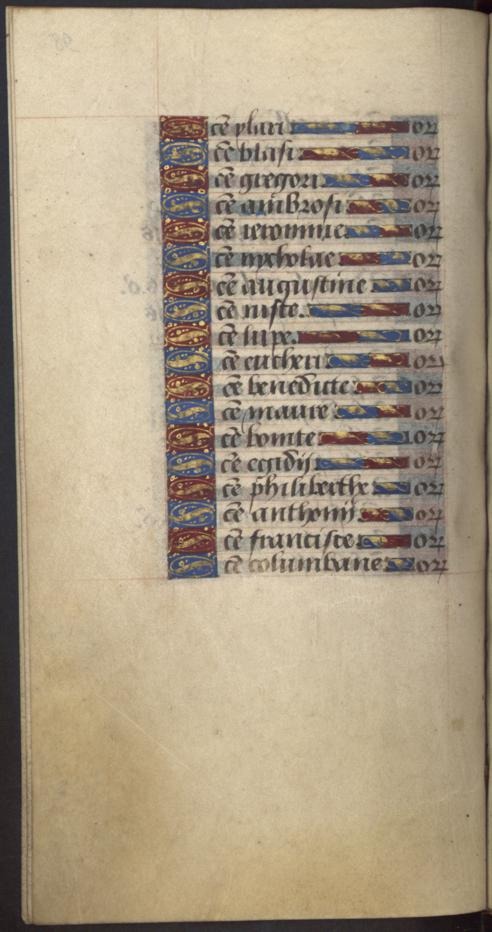 Sce ylari or
Sce blasi or
Sce gregori or
Sce ambrosi or
Sce ieronime or
Sce nycholae or
Sce augustine or
Sce niste or
Sce lupe or
Sce eucheri or
Sce benedicte or
Sce maure or
Sce bonite or
Sce egidij or
Sce philiberthe or
Sce anthonij or
Sce francisce or
Sce columbane or